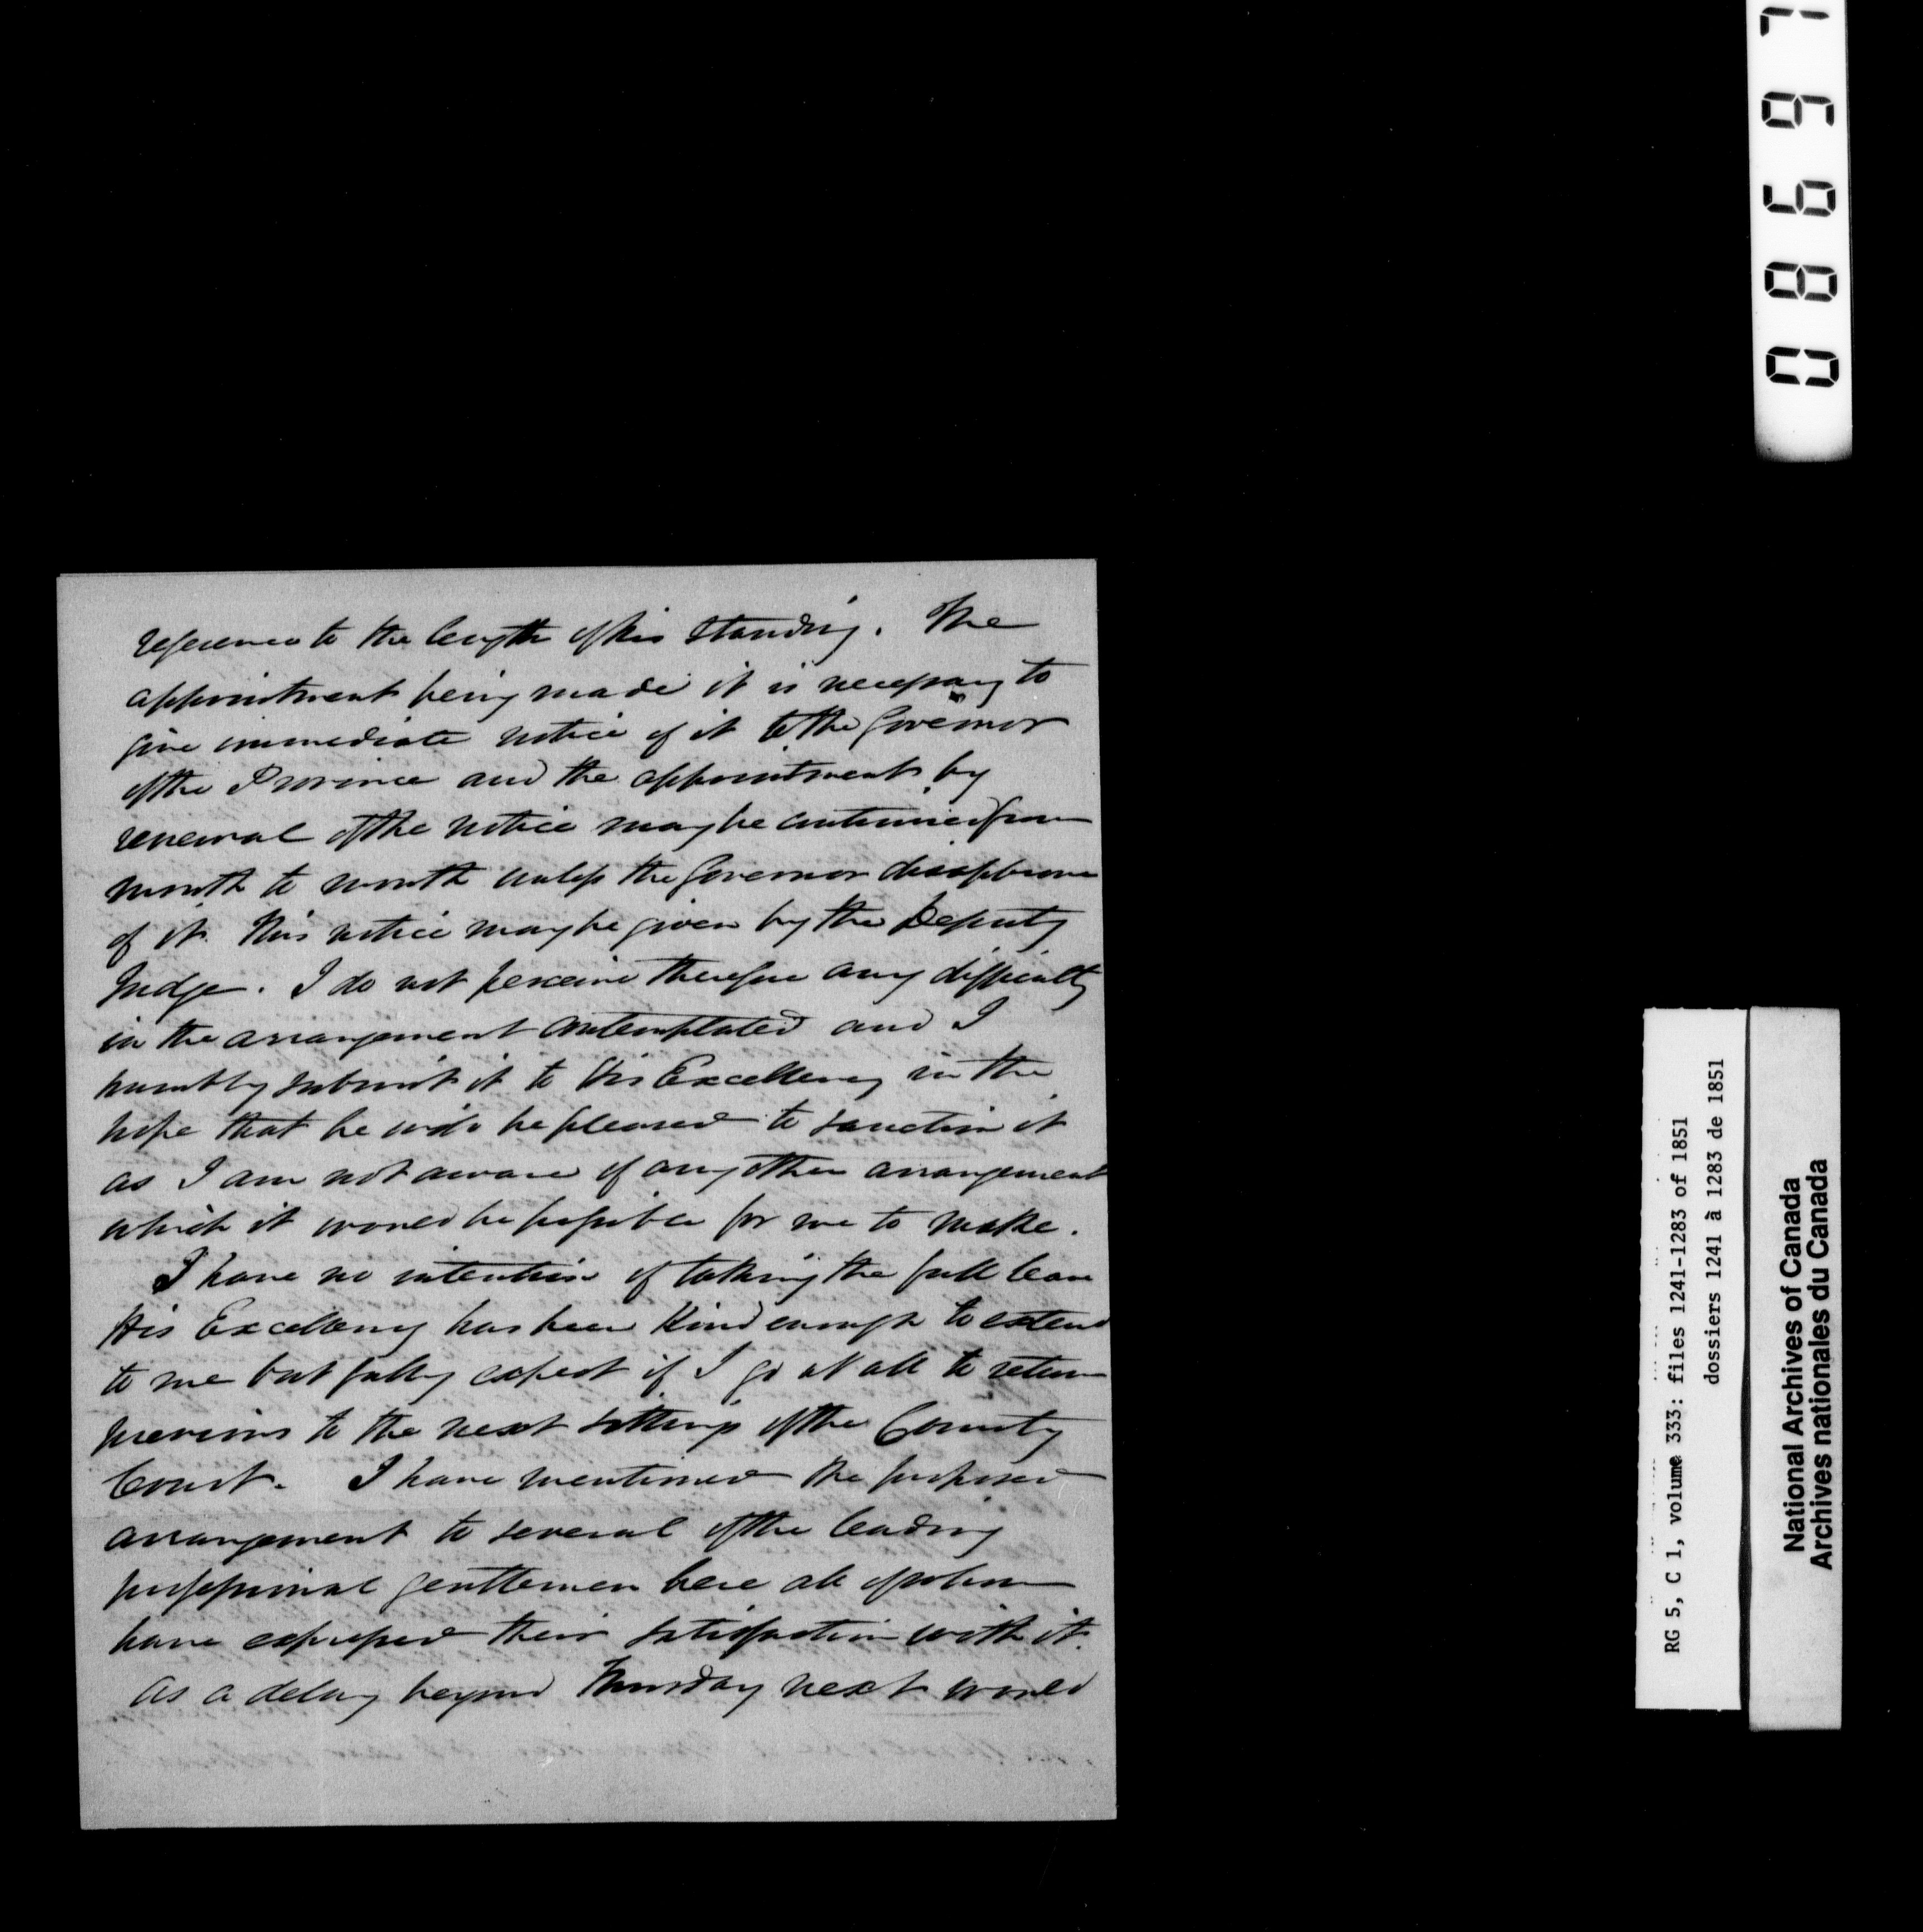 reference to the length of his standing. The
appointment being made it is necessary to
give immediate notice of it to the Governor
of the Province and the appointment by
renewal of the notice may be continued from
month to month unless the Governor disapprove
of it. This notice may be given by the Deputy
Judge. I do not perceive therefore any difficulty
in the arrangement contemplated and I
humbly submit it to His Excellency in the
hope that he will be pleased to sanction it
as I am not aware of any other arrangement
which it would be possible for me to make.
I have no intention of taking the full leave
His Excellency has been kind enough to extend
to me but fully expect if I go at all to return
previous to the next sittings of the County
Court. I have mentioned the proposed
arrangement to several of the leading
professional gentlemen here all of whom
have expressed their satisfaction with it.
As a delay beyond Thursday next would
08697
RG 5, C 1, volume 333: files 1241-1283 of 1851
dossiers 1241 à 1283 de 1851
National Archives of Canada
Archives nationales du Canada